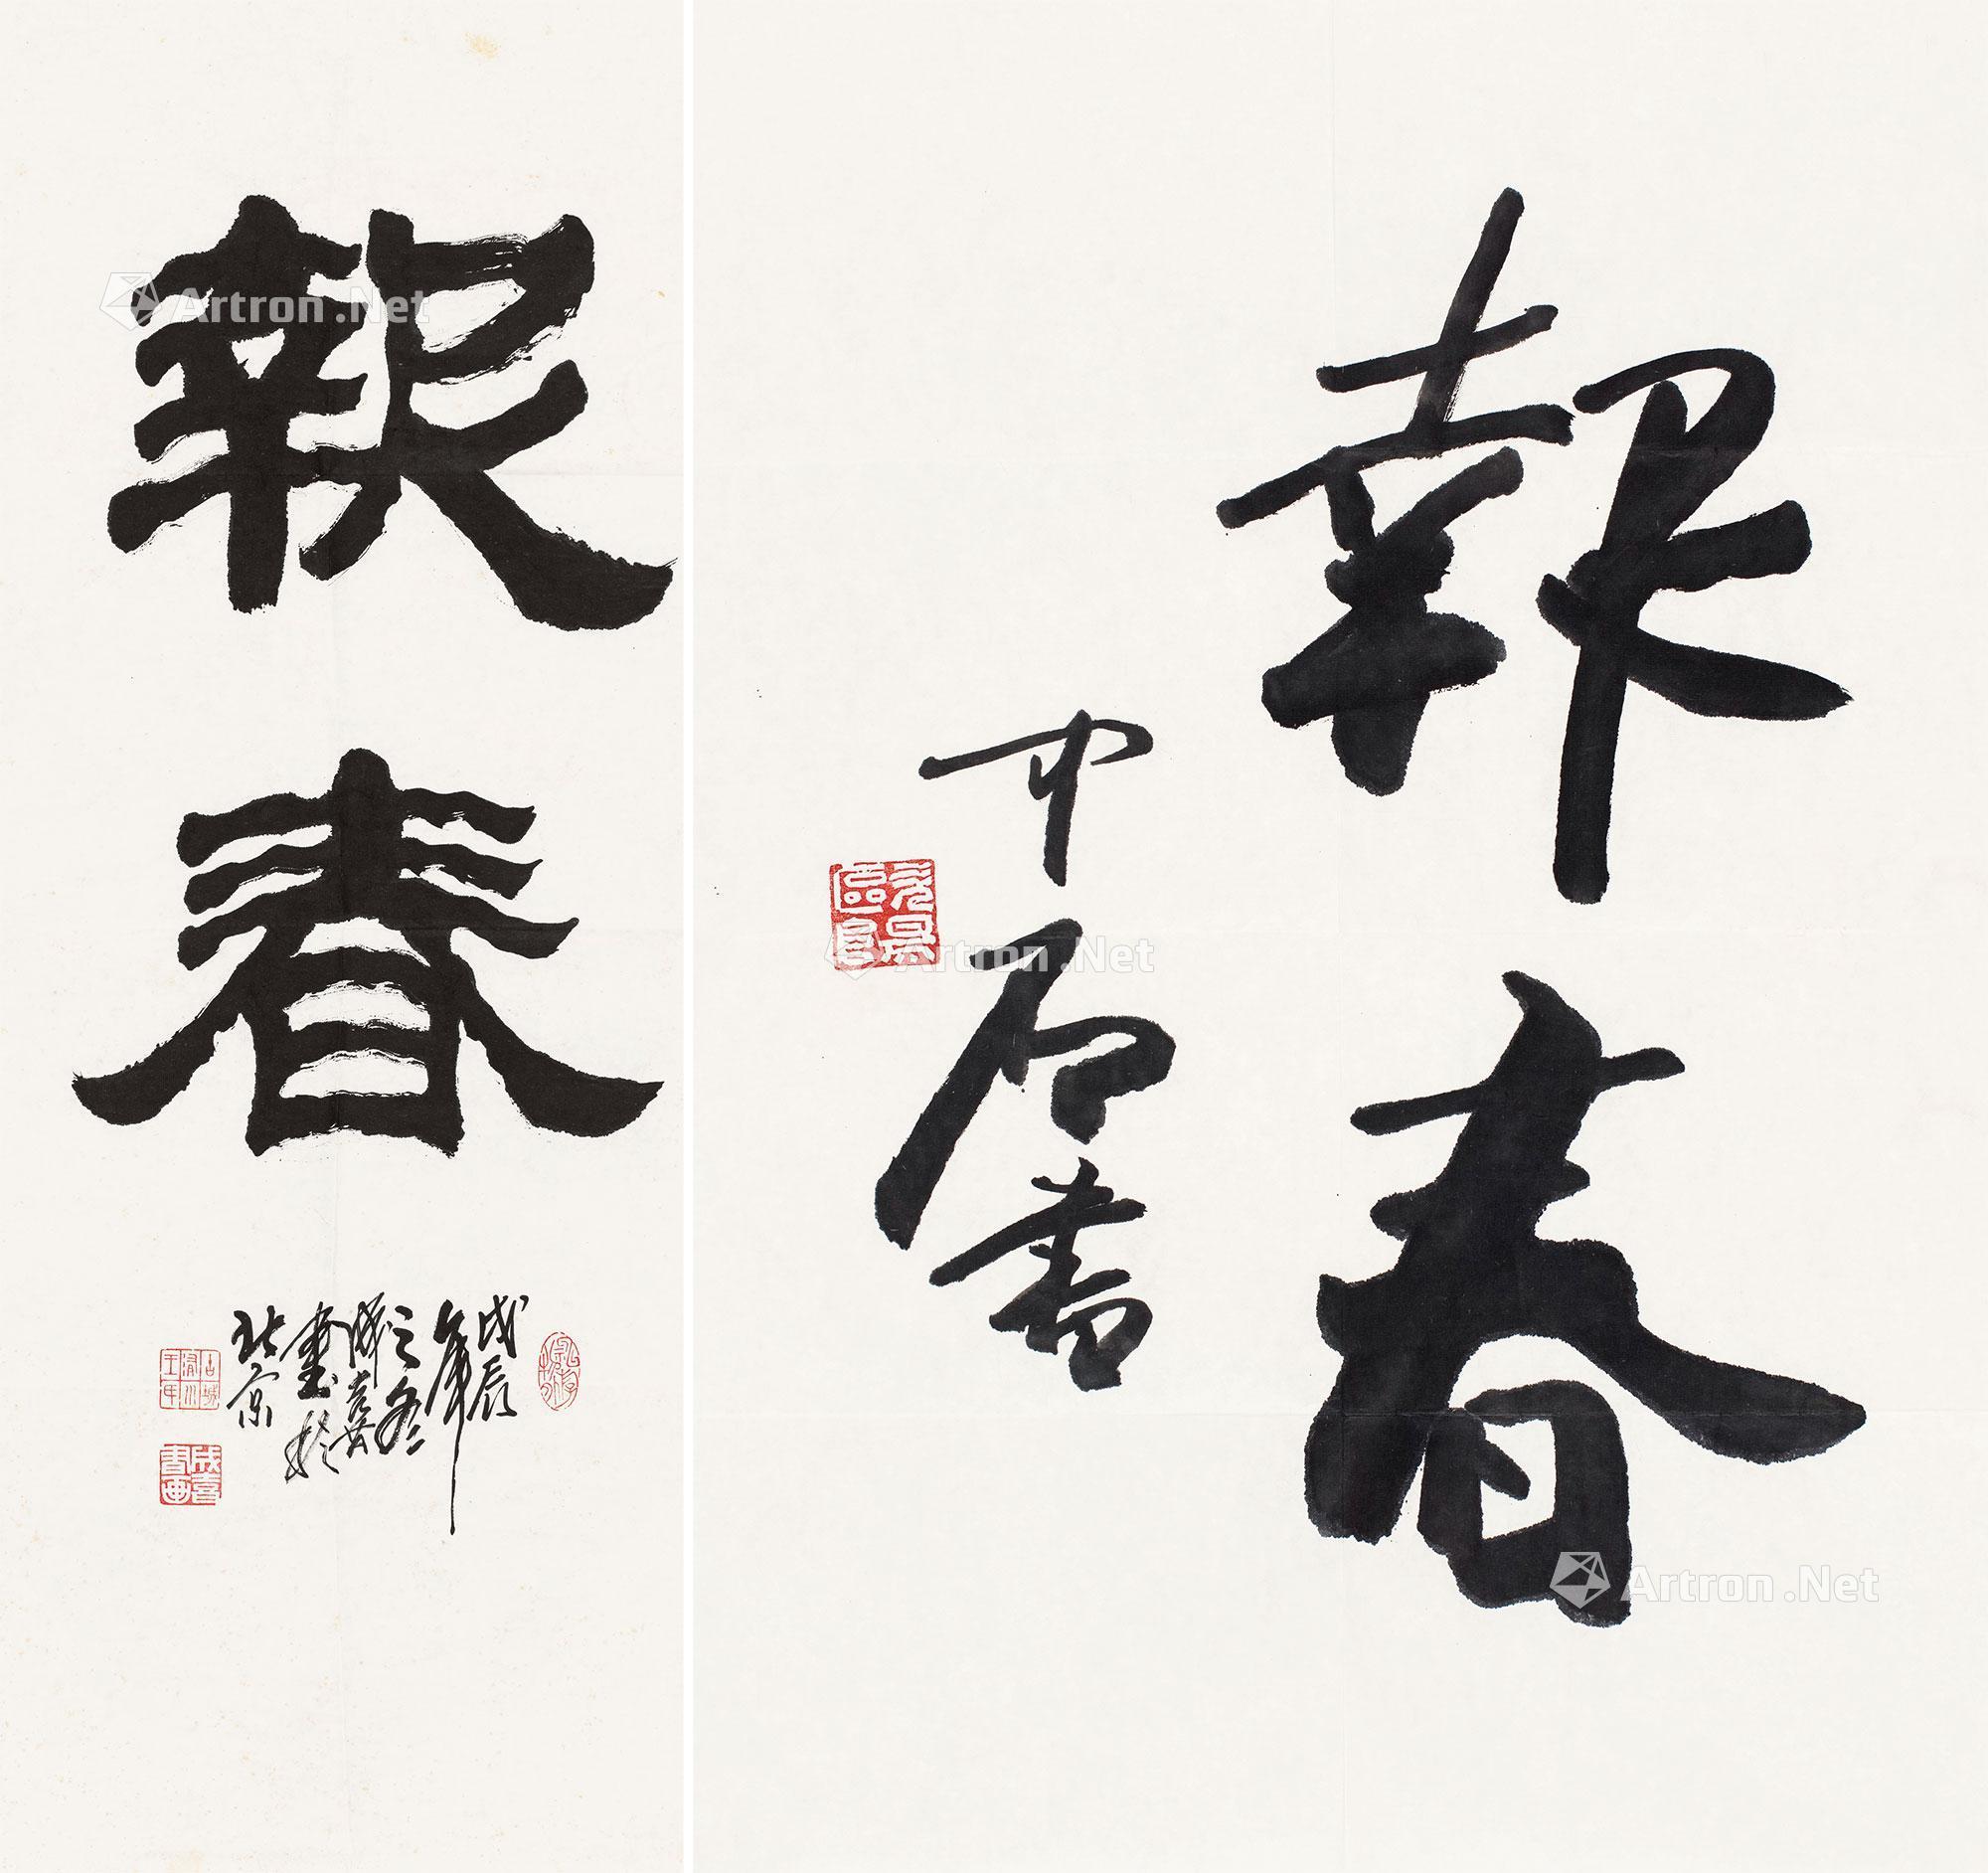 報春
戊辰
年
之冬
成喜
書於
北京
成喜書画
報春
中石書
Artron.Net
Artron.Net
Artron.Net